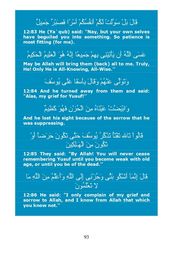 قَالَ بَلْ سَوَّلَتْ لَكُمْ أَنفُسُكُمْ أَمْرًا فَصَبْرٌ جَمِيلٌ
12:83 He (Ya`qub) said: "Nay, but your own selves
have beguiled you into something. So patience is
most fitting (for me).
عَسَى اللَّهُ أَن يَأْتِيَنِي بِهِمْ جَمِيعًا إِنَّهُ هُوَ الْعَلِيمُ الْحَكِيمُ
May be Allah will bring them (back) all to me. Truly,
He! Only He is All-Knowing, All-Wise."
وَتَوَلَّى عَنْهُمْ وَقَالَ يَاأَسَفَى عَلَى يُوسُفَ
12:84 And he turned away from them and said:
"Alas, my grief for Yusuf!"
وَابْيَضَّتْ عَيْنَاهُ مِنَ الْحُزْنِ فَهُوَ كَظِيمٌ
And he lost his sight because of the sorrow that he
was suppressing.
قَالُوا تَاللَّه تَفْتَأُ تَذْكُرُ يُوسُفَ حَتَّى تَكُونَ حَرَضًا أَوْ
تَكُونَ مِنَ الْهَالِكِينَ
12:85 They said: "By Allah! You will never cease
remembering Yusuf until you become weak with old
age, or until you be of the dead."
قَالَ إِنَّمَا أَشْكُو بَثِّي وَحُزْنِي إِلَى اللَّهِ وَأَعْلَمُ مِنَ اللَّهِ مَا
لَا تَعْلَمُونَ
12:86 He said: "I only complain of my grief and
sorrow to Allah, and I know from Allah that which
you know not."
93